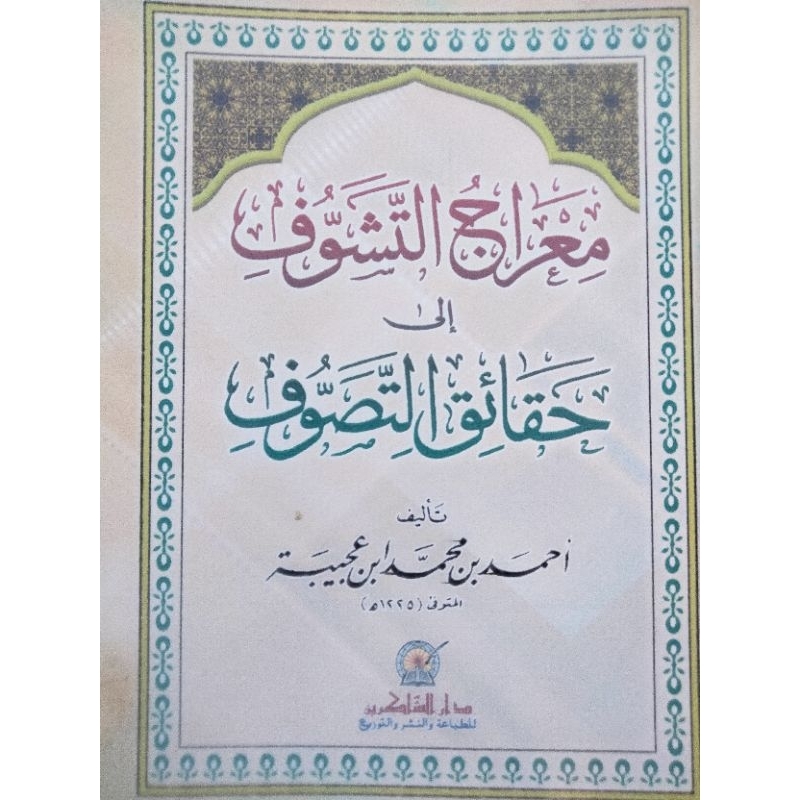 مِعْرَاجُ التَّشَوُّفِ
إلى
حَقَائِقِ التَّصَوُّفِ
تَأليف
أحمد بن محمد ابن عجيبة
المتوفى (١٢٢٥ه)
دار الشاكرين
للطباعة والنشر والتوزيع